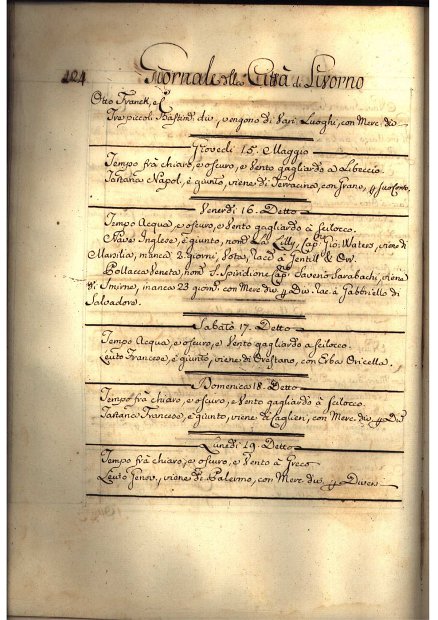 124 Giornale della Città di Livorno
Otto Franck, e C.
Tre piccoli Bastimti dive, vengono di Vari Luoghi, con Merc. dive
Giovedi 15. Maggio
Tempo frà chiaro, e oscuro, e Vento gagliardo a Libeccio
Tartana Napol, è giunto, viene di Terracina, con Grano, p suo Conto.
Venerdi 16. Detto
Tempo Acqua, e oscuro, e Vento gagliardo à Scilocco.
Nave Inglese, è giunto, nomta La Lilly, Cap. Gio. Waters, viene di
Marsilia, manca 2. giorni, Vota, racc. à Gentill & Orr.
Pollacca Veneta, nomta S. Spiridione Cap. Saverio Sarabachi, viene
di Smirne, manca 23 giorni. con Merc. dive p Div. rac. à Gabbriello di
Salvadore.
Sabato 17. Detto
Tempo Acqua, e oscuro, e Vento gagliardo a Scilocco.
Leuto Francese, è giunto, viene di Orestano, con Erba Oricella.
Domenica 18. Detto
Tempo frà chiaro, e oscuro, e Vento gagliardo à Scilocco.
Tartana Francese, è giunto, viene di Caglieri, con Merc. dive p Divi
Lunedi 19. Detto
Tempo frà chiaro, e oscuro, e Vento à Greco
Leuto Genov., viene di Palermo, con Merc. dive p Diversi